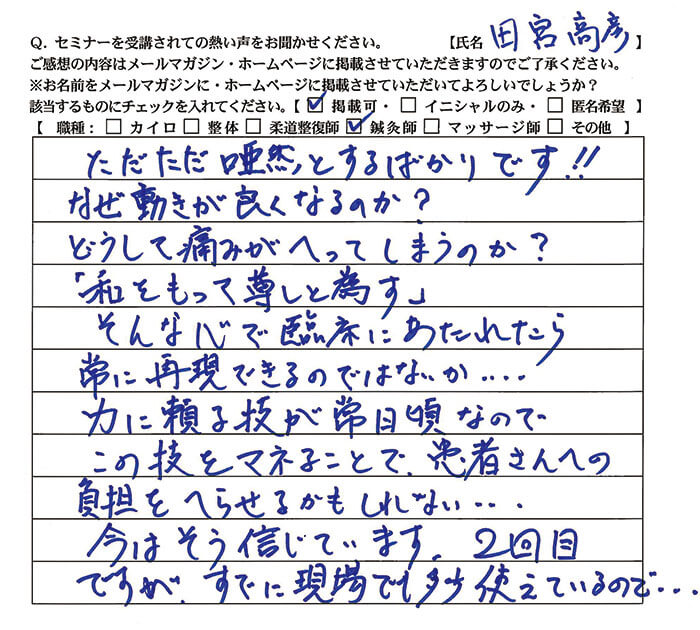 Q. セミナーを受講されての熱い声をお聞かせください。 【氏名 田宮高彦 】
ご感想の内容はメールマガジン・ホームページに掲載させていただきますのでご了承ください。
※お名前をメールマガジンに・ホームページに掲載させていただいてよろしいでしょうか？
該当するものにチェックを入れてください。【 ☑ 掲載可・ □ イニシャルのみ・ □ 匿名希望 】
【 職種： □ カイロ □ 整体 □ 柔道整復師 ☑ 鍼灸師 □ マッサージ師 □ その他 】
ただただ唖然とするばかりです!!
なぜ動きが良くなるのか？
どうして痛みがへってしまうのか？
「和をもって尊しと為す」
そんな心で臨床にあたれたら
常に再現できるのではないか‥‥
力に頼る技が常日頃なので
この技をマネることで、患者さんへの
負担をへらせるかもしれない‥・
今はそう信じています。2回目
ですが、すでに現場でも多少使えているので・・・